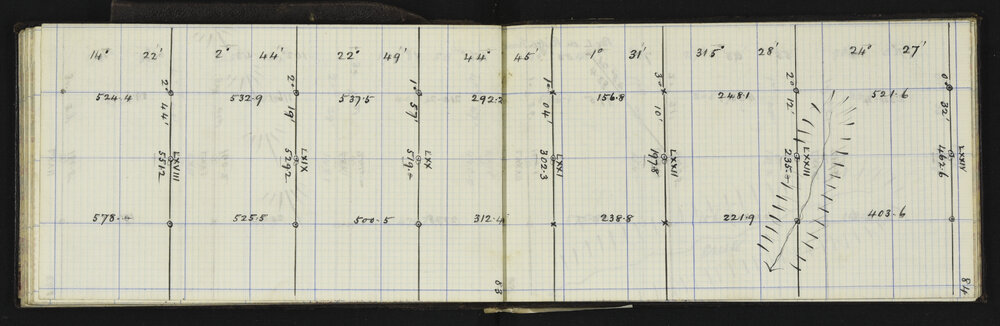 14° 22' 2° 44' 22° 49' 44° 45' 1° 31' 315° 28' 24° 27'
524.4 532.9 537.5 292.2 156.8 248.1 521.6
2° 44' 2° 19' 1° 57' 1° 04' 3° 10' 2° 12' 0° 32'
LXVIII LXIX LXX LXXI LXXII LXXIII LXXIV
551.2 529.2 302.3 197.8 462.6
578. 525.5 500.5 312.4 238.8 221.9 403.6
83 84